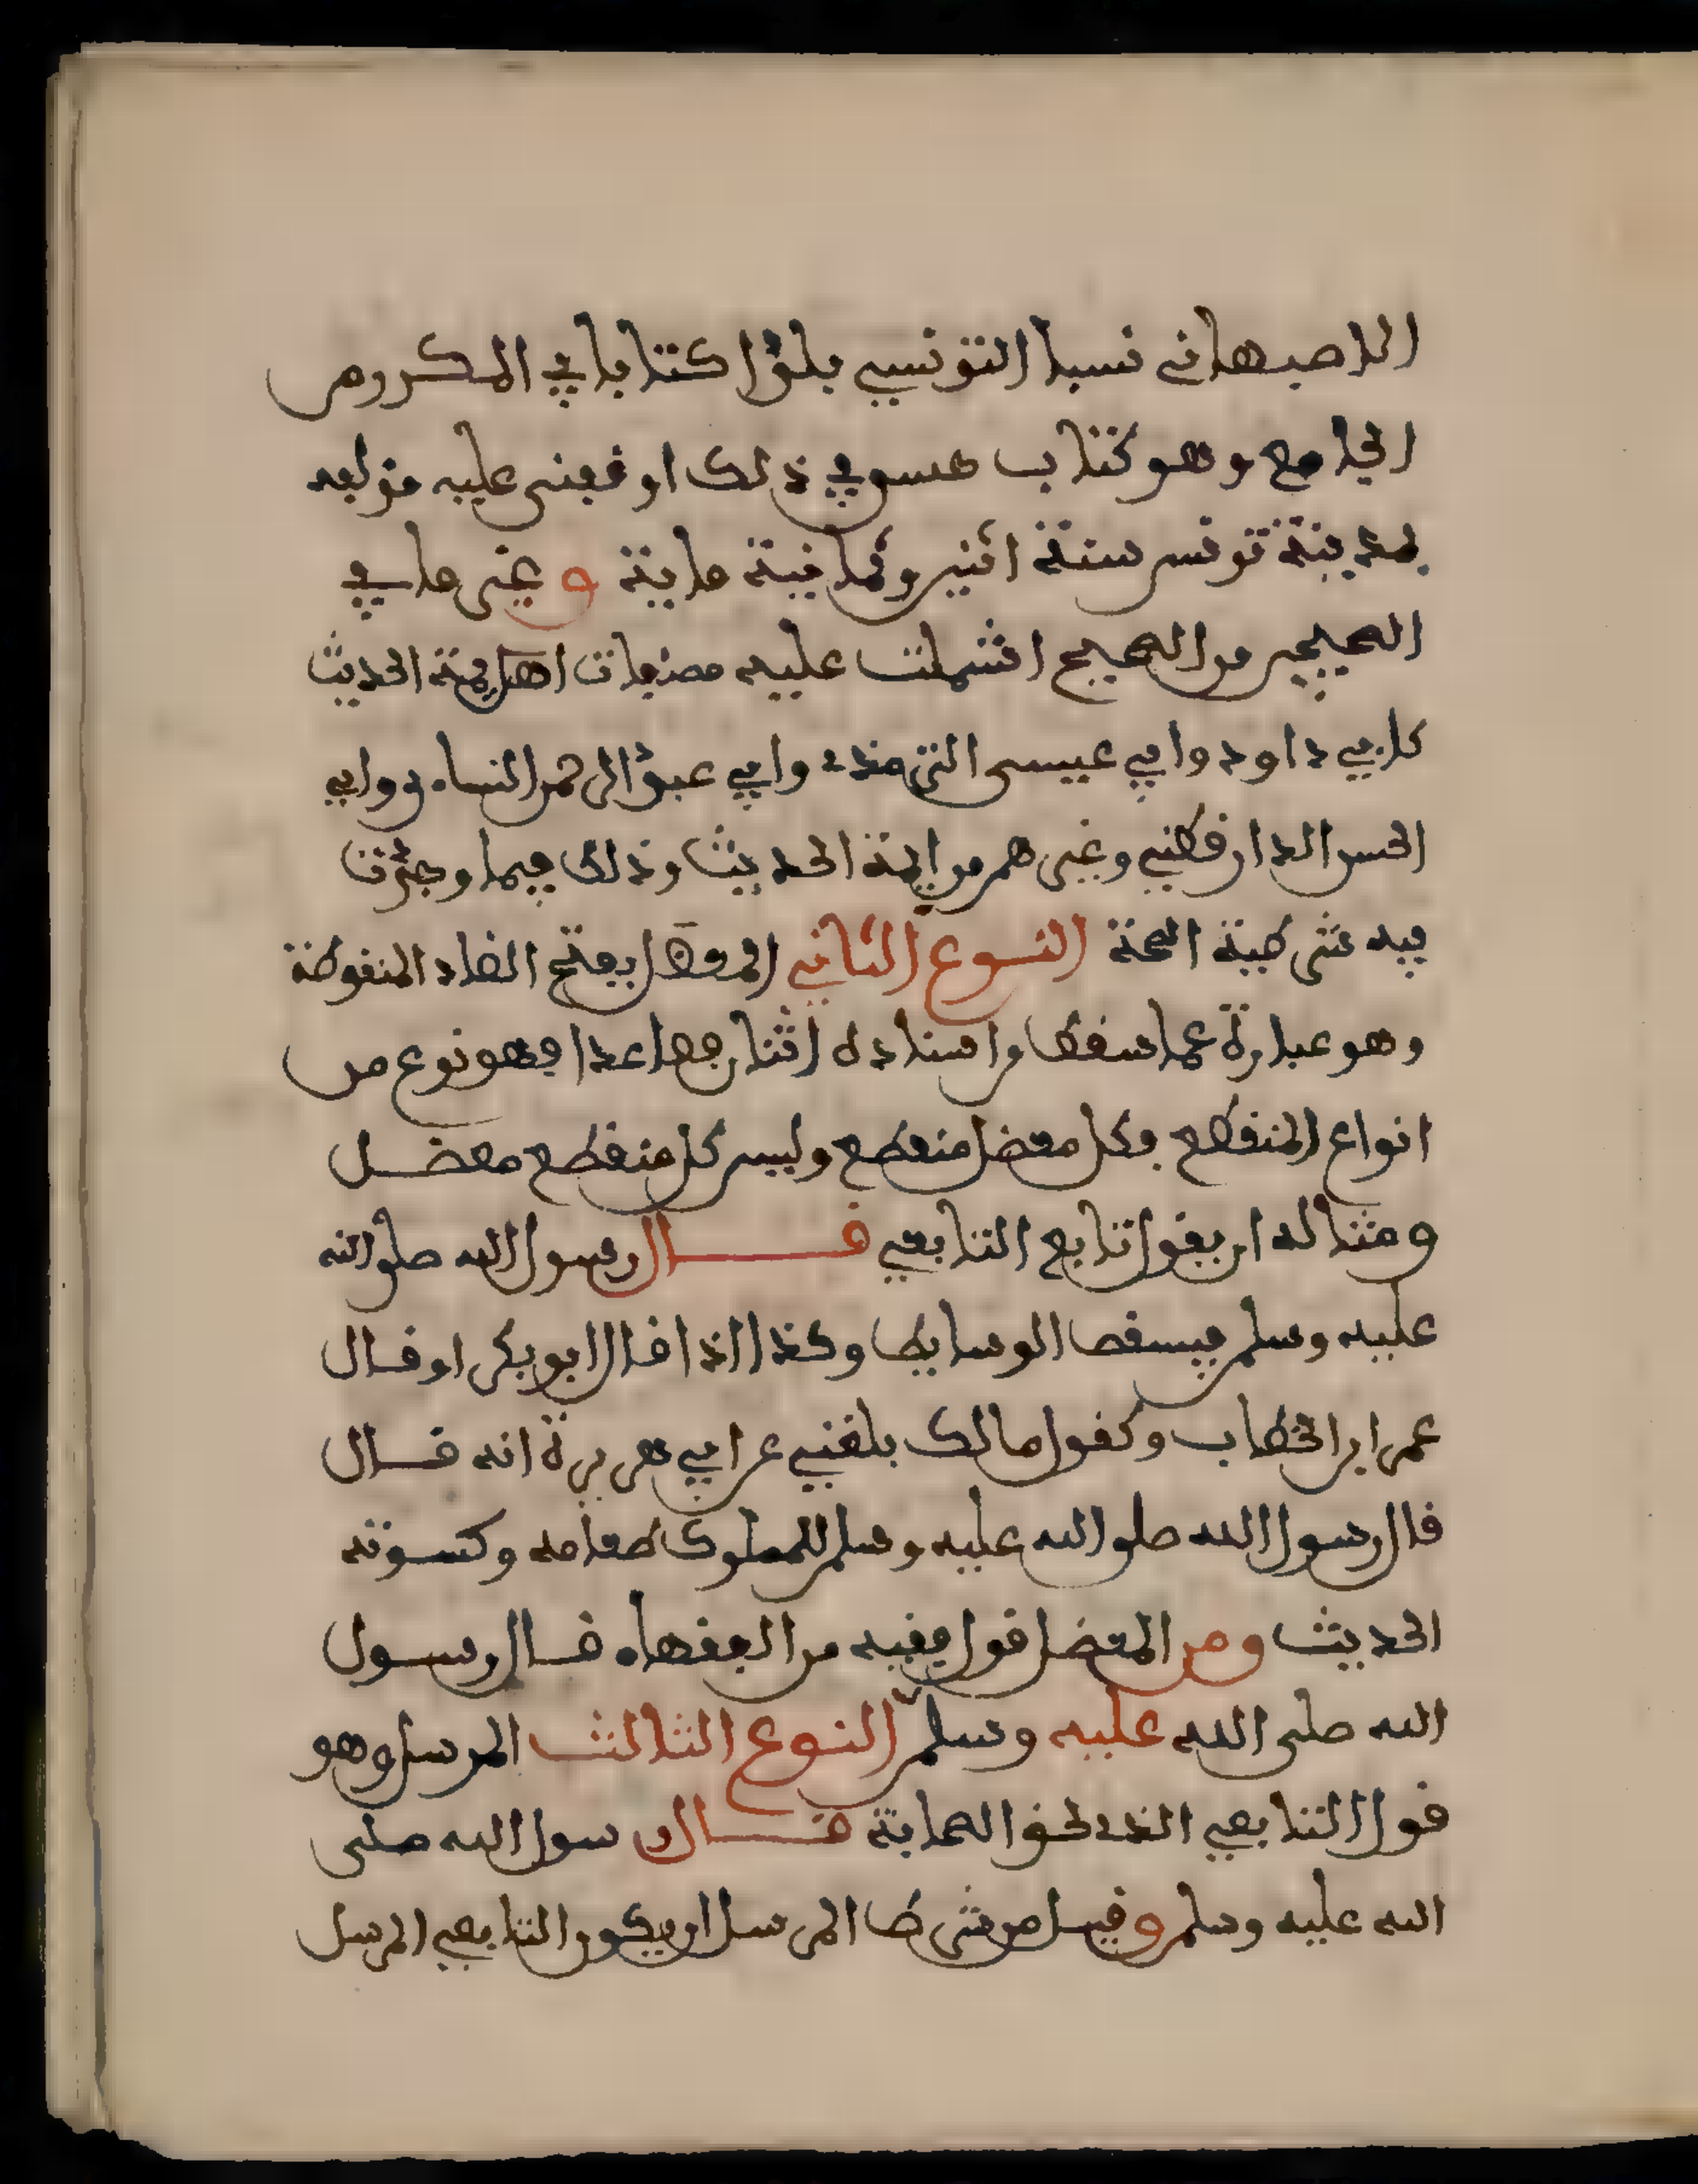 الاصبهاني نسبا التونسي بلدا كتابا في المكروم
الجامع وهو كتاب حسن في ذلك اوقفني عليه مؤلفه
بمدينة تونس سنة اثنين وثمانية ماية وغير ما في
الصحيحين من الصحيح اشتملت عليه مصنفات اهل ايمة الحديث
كابي داود وابي عيسى الترمذي وابي عبد الرحمن النساءي وابي
الحسن الدارقطني وغيرهم من ايمة الحديث وذلك فيما وجدت
فيه شرطية الصحة النوع الثاني المعضل بفتح الضاد المنقوطة
وهو عبارة عما سقط من اسناده اثنان فصاعدا فهو نوع من
انواع المنقطع فكل معضل منقطع وليس كل منقطع معضل
ومثاله ان يقول تابع التابعي قال رسول الله صلى الله
عليه وسلم فيسقط الوسايط وكذا اذا قال ابو بكر او قال
عمر ابن الخطاب وكقول مالك بلغني عن ابي هريرة انه قال
قال رسول الله صلى الله عليه وسلم للمملوك طعامه وكسوته
الحديث ومن المعضل قول فقيه من الفقهاء قال رسول
الله صلى الله عليه وسلم النوع الثالث المرسل وهو
قول التابعي الذي لحق الصحابة قال رسول الله صلى
الله عليه وسلم وقيل من شرط المرسل ان يكون التابعي المرسل